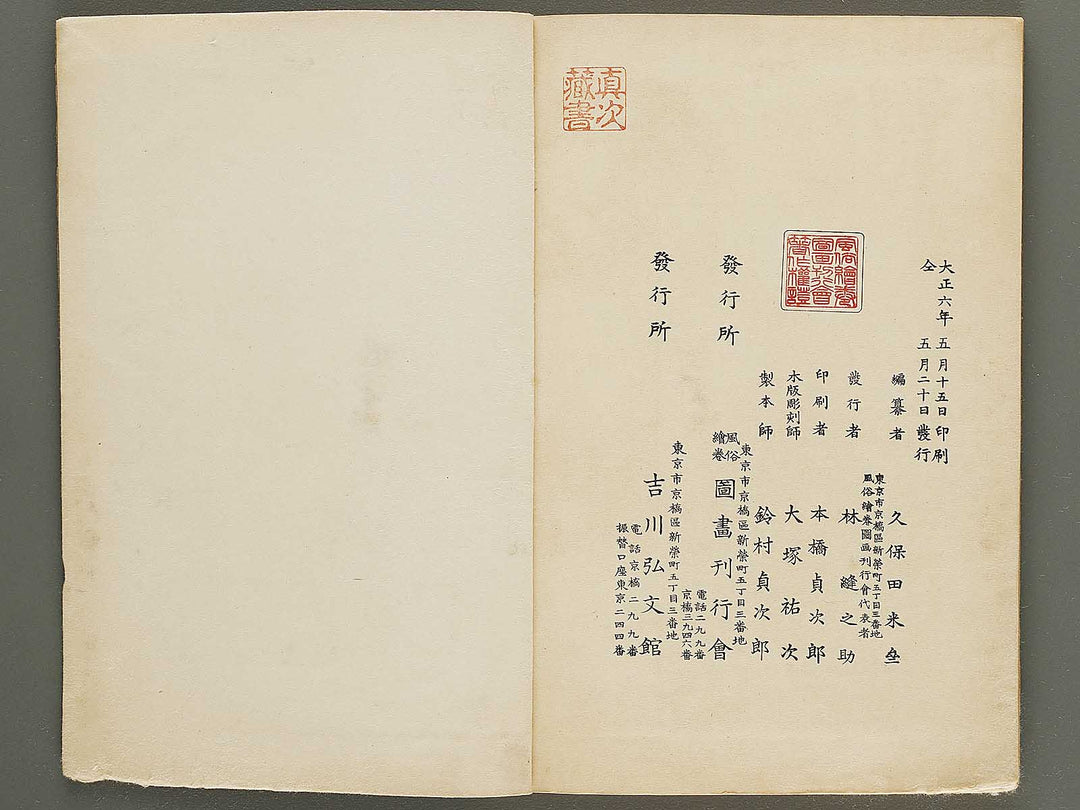 真次
藏書
大正六年五月十五日印刷
仝 五月二十日發行
編纂者 久保田米斎
東京市京橋區新榮町五丁目三番地
風俗繪卷圖画刊行會代表者
發行者 林縫之助
印刷者 本橋貞次郎
木版彫刻師 大塚祐次
製本師 鈴村貞次郎
風俗繪卷圖畫刊行會著作權證
東京市京橋區新榮町五丁目三番地
發行所 風俗繪卷 圖畫刊行會
電話二九九番
京橋三九四六番
東京市京橋區新榮町五丁目三番地
發行所 吉川弘文館
電話京橋二九九番
振替口座東京二四四番